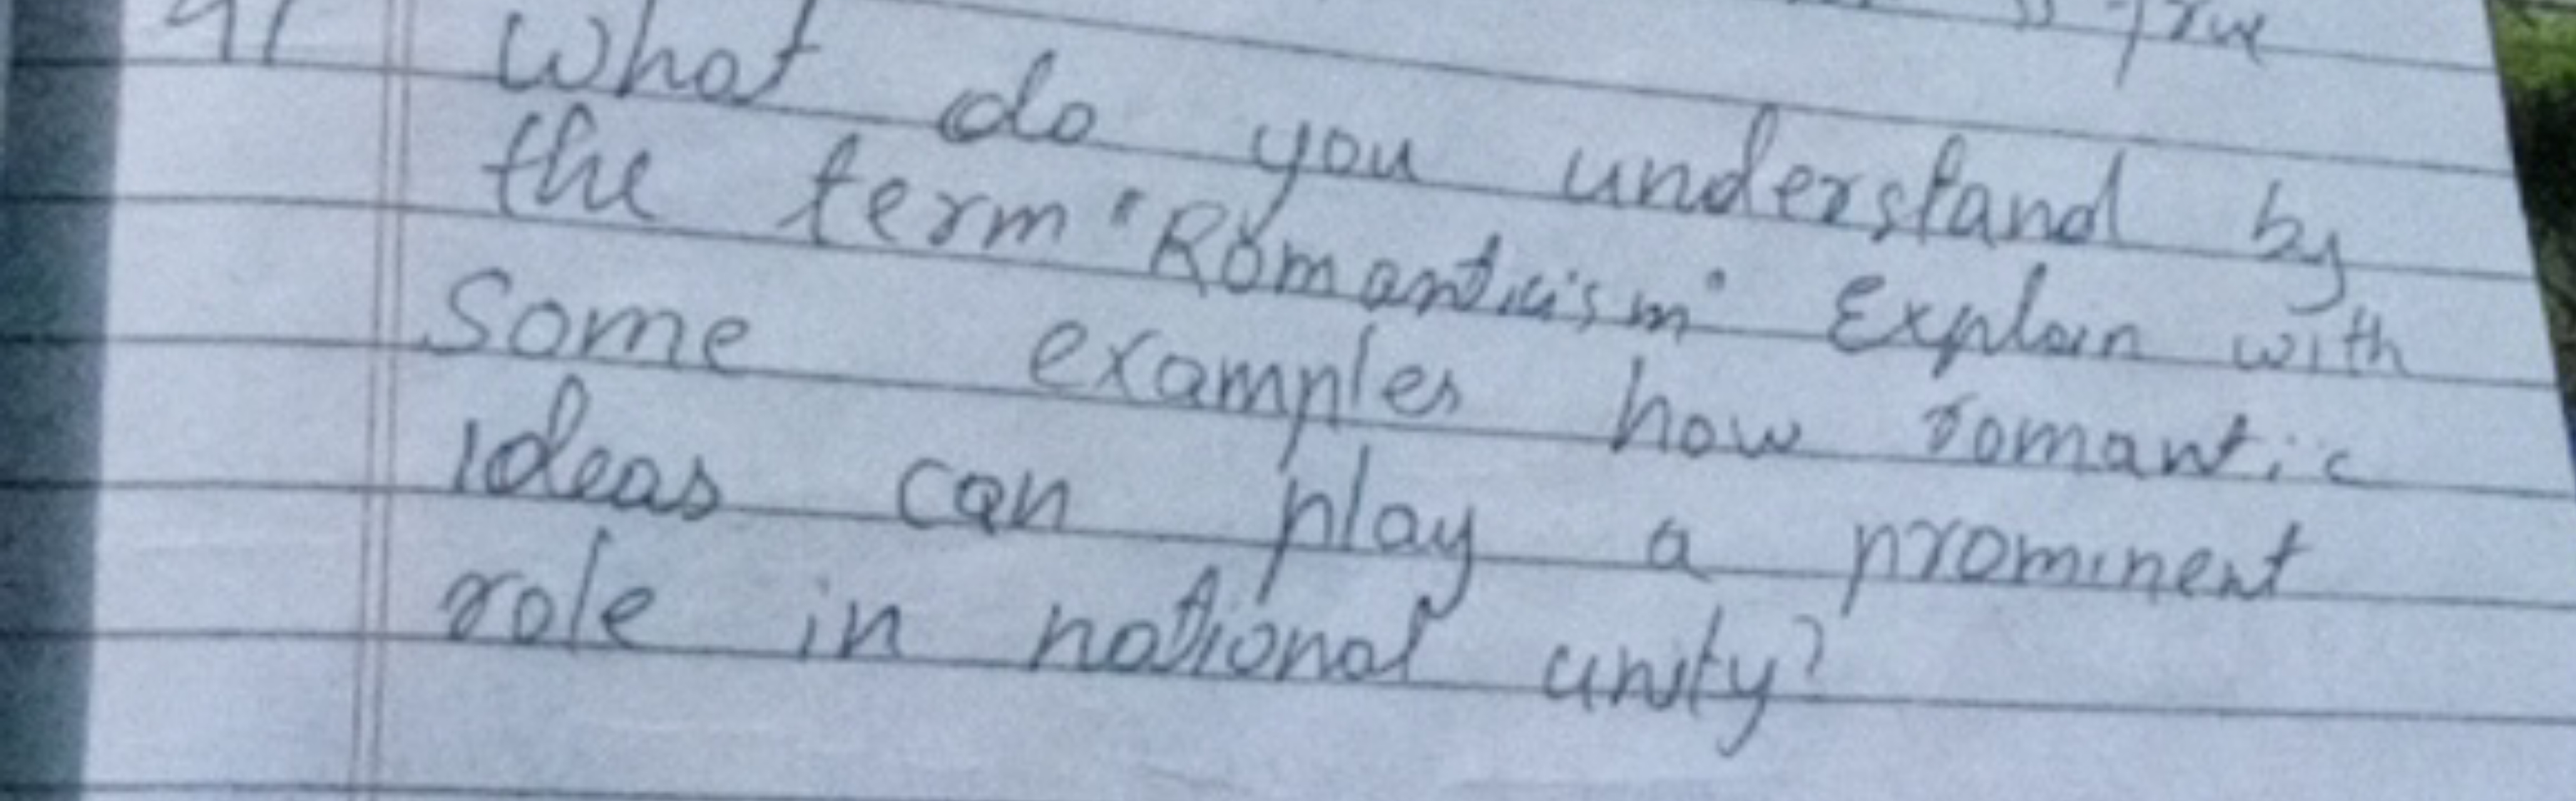 What do you understand by
the term "Romanticism" Explain with
Some examples how romantic
ideas can play a prominent
role in national unity?